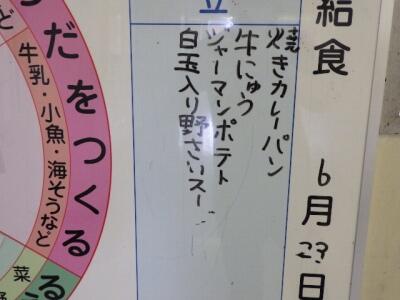 給食
6月23日
立
焼きカレーパン
牛にゅう
ジャーマンポテト
白玉入り野さいスー
だをつくる
牛乳・小魚・海そうなど